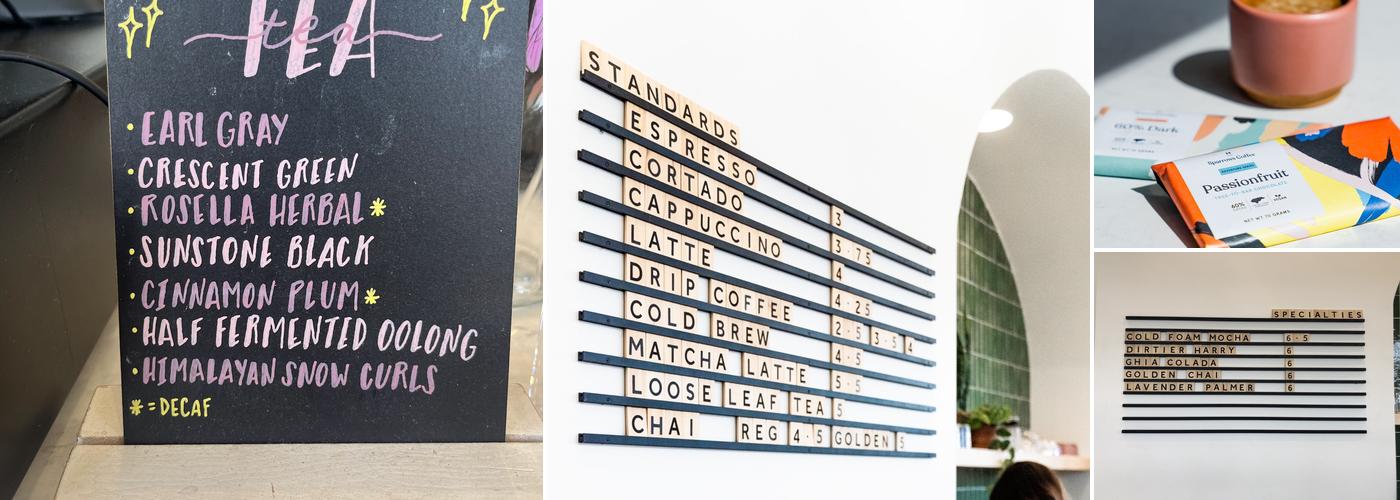 TEA
tea
• EARL GRAY
• CRESCENT GREEN
• ROSELLA HERBAL *
• SUNSTONE BLACK
• CINNAMON PLUM *
• HALF FERMENTED OOLONG
• HIMALAYAN SNOW CURLS
* = DECAF
STANDARDS
ESPRESSO 3
CORTADO 3·75
CAPPUCCINO 4
LATTE 4·25
DRIP COFFEE 2·5 3·5 4
COLD BREW 4·5
MATCHA LATTE 5·5
LOOSE LEAF TEA 5
CHAI REG 4·5 GOLDEN 5
60% Dark
Sparrows Coffee
Passionfruit
TREE-TO-BAR CHOCOLATE
60%
NET WT 70 GRAMS
SPECIALTIES
COLD FOAM MOCHA 6·5
DIRTIER HARRY 6
GHIA COLADA 6
GOLDEN CHAI 6
LAVENDER PALMER 6